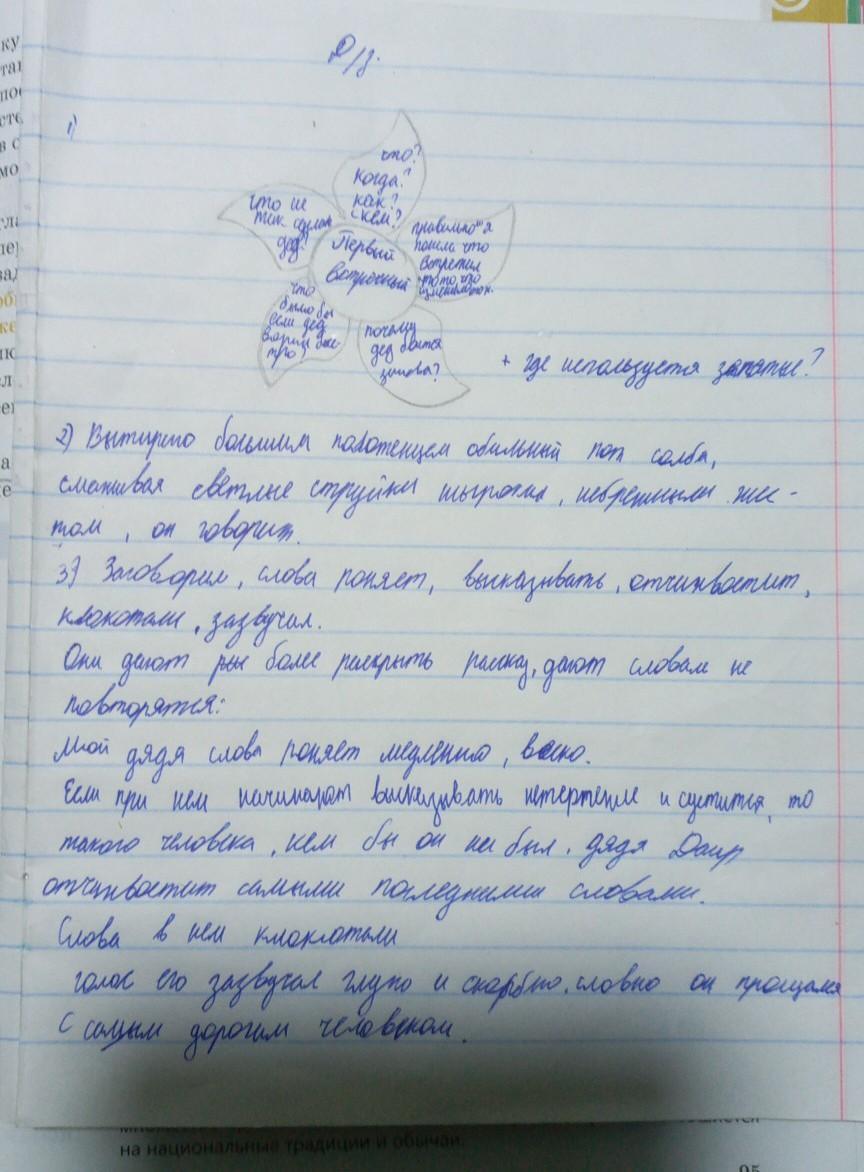 Д/з.
1)
что?
когда?
как?
с кем?
что не
так сделал
дед?
Первый
встречный
правильно я
поняла что
встретил
того кто
что
было бы
если дед
почему
дед боится
+ где используется запятые?
2) Вытирпо большим полотенцем обильный пот солба,
смахивая светлые струйки небрежным жес-
том, он говорит.
3) Заговорил, слова роняет, высказывать, отчихвостит,
клокотали, зазвучал.
Они дают более раскрыть рассказ, дают словам не
повторятся:
Мой дядя слова роняет медленно, васно.
Если при нем начинают высказывать нетерпение и суетится, то
такого человека, кем бы он не был, дядя Даир
отчихвостит самыми последними словами.
Слова в нем клокотали
голос его зазвучал глухо и скорбно, словно он прощался
с самым дорогим человеком.
на национальные традиции и обычаи.
95